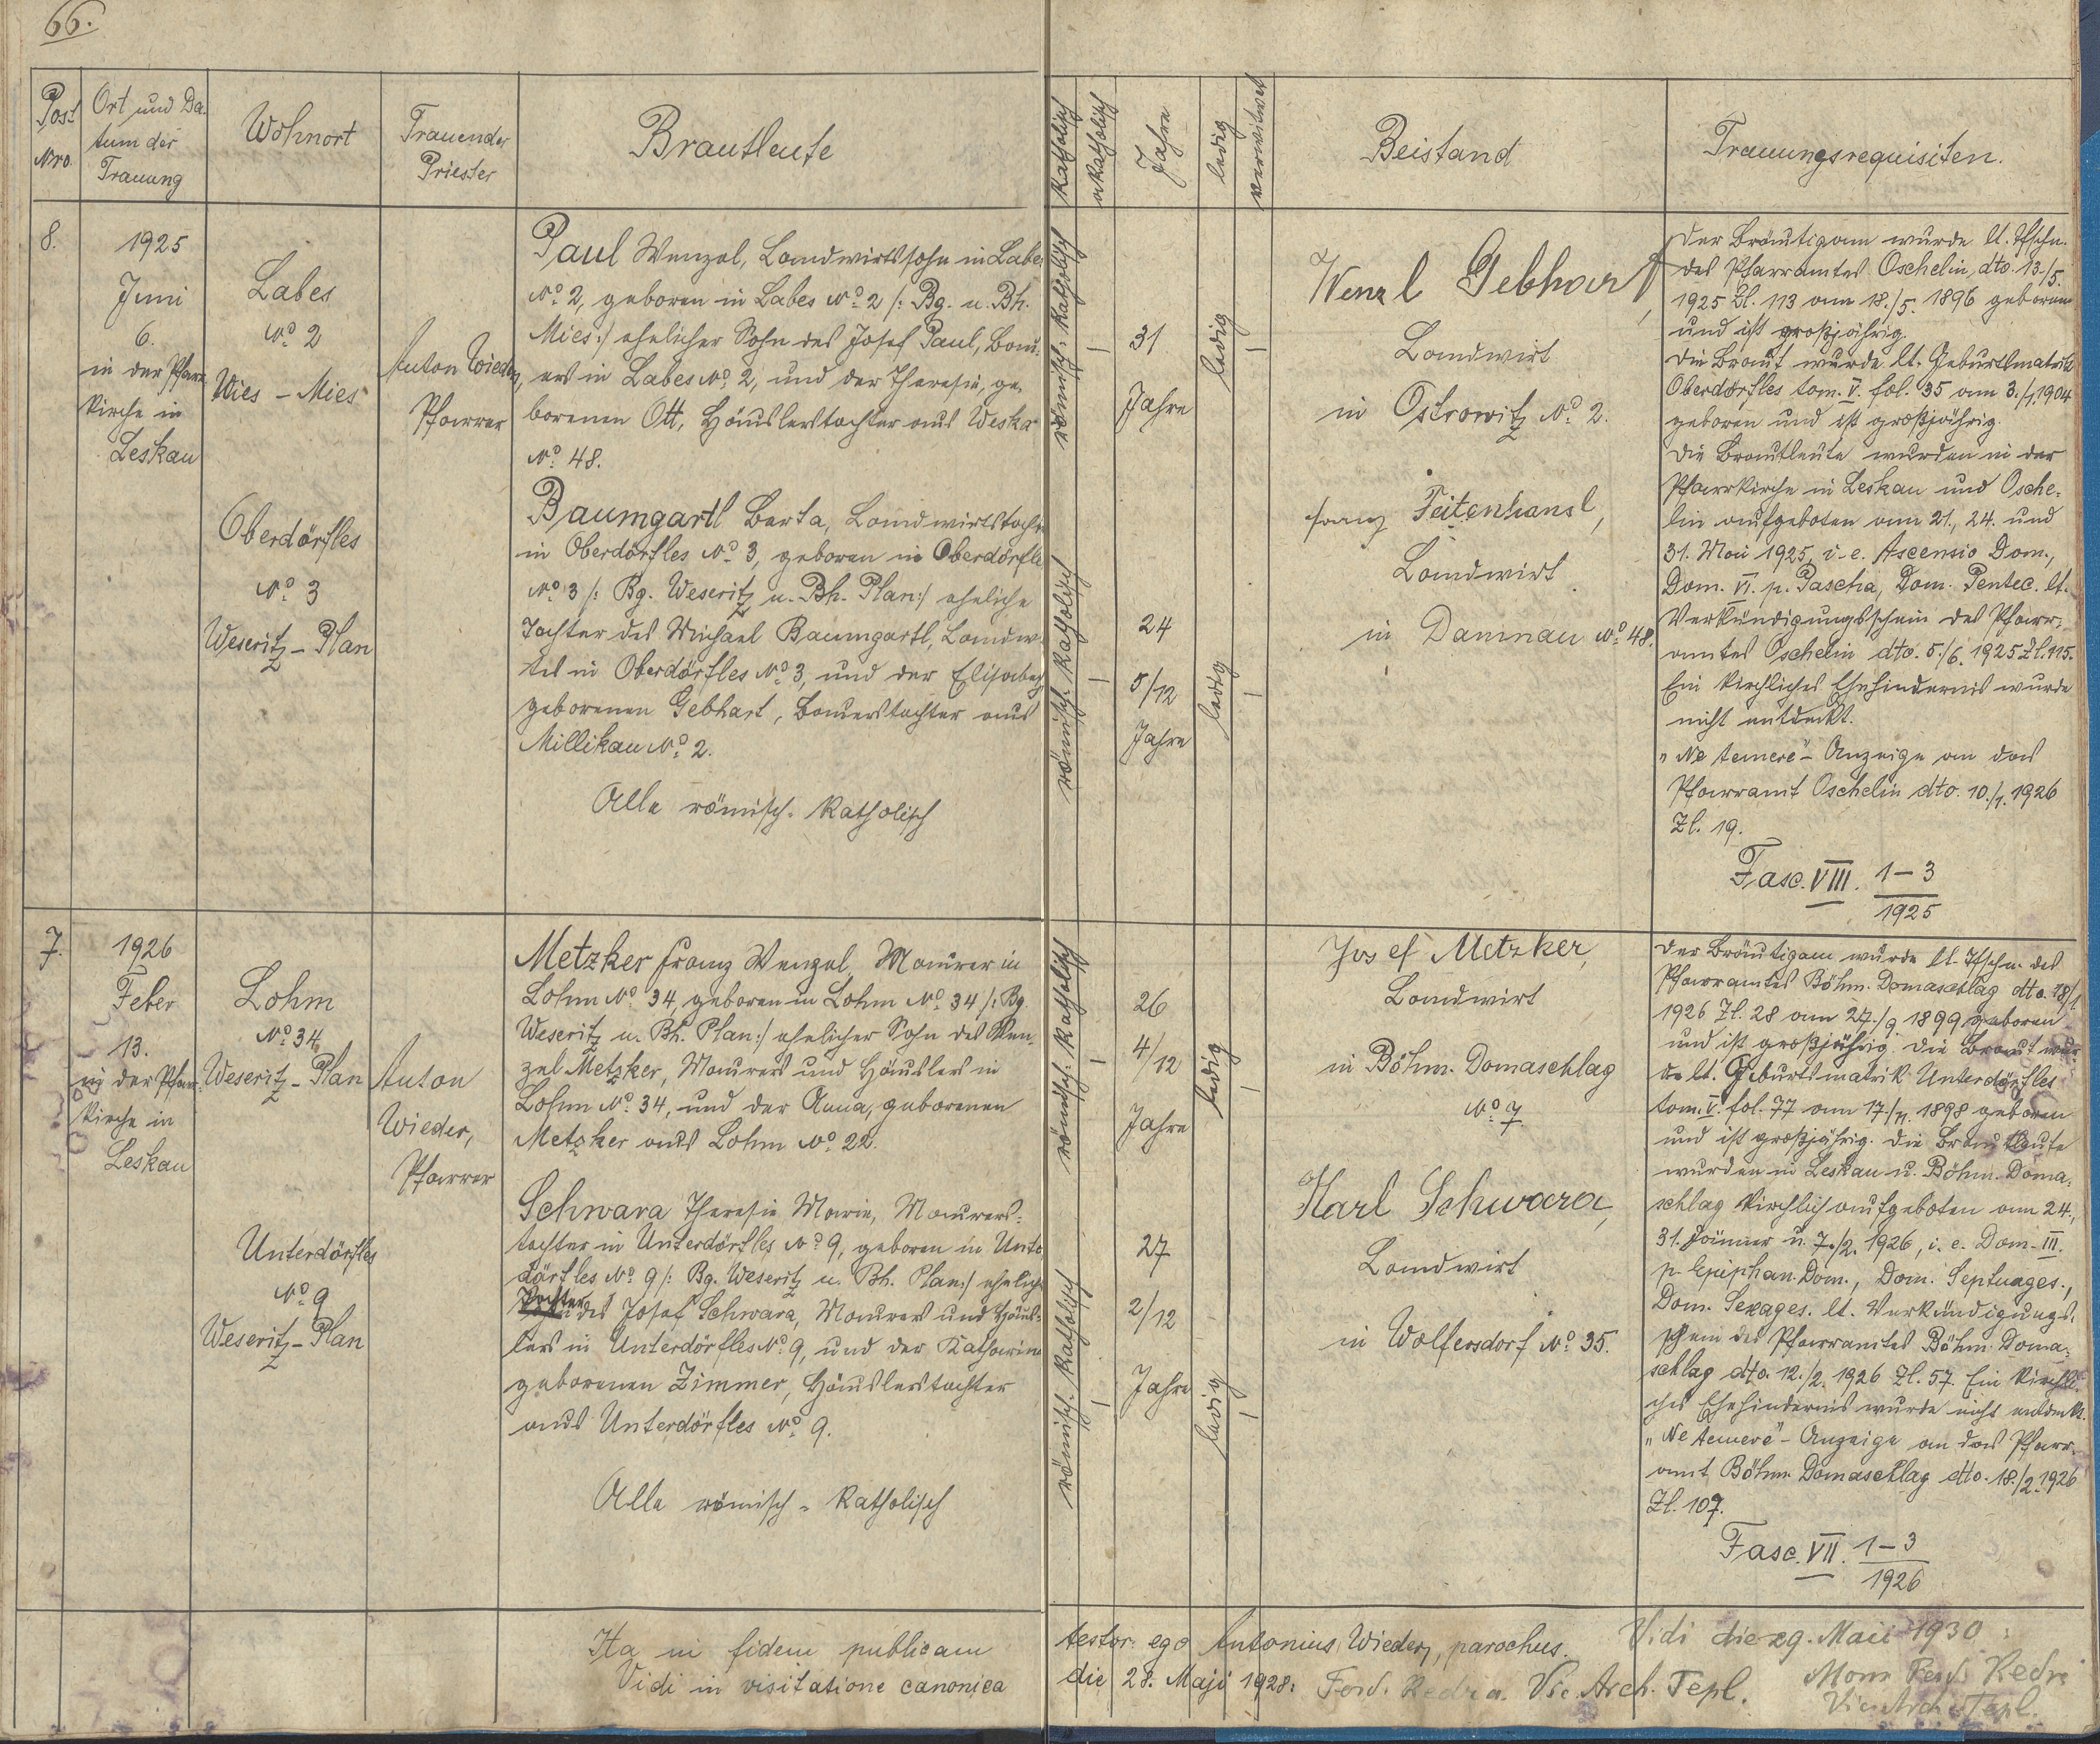 66.
Post
Nro.
Ort und Da-
tum der
Trauung
Wohnort
Trauender
Priester
Brautleute
katholisch
akatholisch
Jahre
ledig
verwitwet
Beistand
Trauungsrequisiten.
8.
1925
Juni
6.
in der Pfarr-
kirche in
Leskau
Labes
No. 2
Mies
Oberdörfles
No. 3
Weseritz - Plan
Anton Wieder,
Pfarrer
Paul Wenzel, Landwirtssohn in Labes
No. 2, geboren in Labes No. 2 /: Bg. u. Bh.
Mies :/ ehelicher Sohn des Josef Paul, Bau-
ers in Labes No. 2, und der Theresia, ge-
borenen Ott, Häuslerstochter aus Weska
No. 48.
Baumgartl Berta, Landwirtstochter
in Oberdörfles No. 3, geboren in Oberdörfles
No. 3 /: Bg. Weseritz u. Bh. Plan :/ eheliche
Tochter des Michael Baumgartl, Landwir-
tes in Oberdörfles No. 3, und der Elisabeth
geborenen Gebhart, Bauerstochter aus
Millikau No. 2.
Alle römisch-katholisch
römisch-katholisch
31
Jahre
ledig
römisch-katholisch
24
5/12
Jahre
ledig
Wenzl Gebhart,
Landwirt
in Ostrowitz No. 2.
Franz Feitenhansl,
Landwirt
in Damnau No. 48.
Der Bräutigam wurde lt. Tfschn.
des Pfarramtes Oschelin, dto. 13./5.
1925 Zl. 113 am 18./5. 1896 geboren
und ist großjährig.
Die Braut wurde lt. Geburtsmatrik
Oberdörfles tom. V. fol. 35 am 3./1. 1904
geboren und ist großjährig.
Die Brautleute wurden in der
Pfarrkirche in Leskau und Osche-
lin aufgeboten am 21., 24. und
31. Mai 1925, i. e. Ascensio Dom.,
Dom. VI. p. Pascha, Dom. Pentec. lt.
Verkündigungsschein des Pfarr-
amtes Oschelin dto. 5./6. 1925 Zl. 115.
Ein kirchliches Ehehindernis wurde
nicht entdeckt.
"Ne temere"- Anzeige an das
Pfarramt Oschelin dto. 10./1. 1926
Zl. 19.
Fasc. VIII. 1-3
1925
7.
1926
Feber
13.
in der Pfarr-
kirche in
Leskau
Lohm
No. 34
Weseritz - Plan
Unterdörfles
No. 9
Weseritz - Plan
Anton
Wieder,
Pfarrer
Metzker Franz Wenzel, Maurer in
Lohm No. 34, geboren in Lohm No. 34 /: Bg.
Weseritz u. Bh. Plan :/ ehelicher Sohn des Wen-
zel Metzker, Maurers und Häuslers in
Lohm No. 34, und der Anna, geborenen
Metzker aus Lohm No. 22.
Schwara Theresia Maria, Maurers-
tochter in Unterdörfles No. 9, geboren in Unter-
dörfles No. 9 /: Bg. Weseritz u. Bh. Plan :/ eheliche
Tochter des Josef Schwara, Maurers und Häus-
lers in Unterdörfles No. 9, und der Katharina
geborenen Zimmer, Häuslerstochter
aus Unterdörfles No. 9.
Alle römisch-katholisch
römisch-katholisch
26
4/12
Jahre
ledig
römisch-katholisch
27
2/12
Jahre
ledig
Josef Metzker,
Landwirt
in Böhm. Domaschlag
No. 7.
Karl Schwara,
Landwirt
in Wolfersdorf No. 35.
Der Bräutigam wurde lt. Tfschn. des
Pfarramtes Böhm. Domaschlag dto. 18/1.
1926 Zl. 28 am 27./9. 1899 geboren
und ist großjährig. Die Braut wur-
de lt. Geburtsmatrik Unterdörfles
tom. V. fol. 77 am 17./11. 1898 geboren
und ist großjährig. Die Brautleute
wurden in Leskau u. Böhm. Doma-
schlag kirchlich aufgeboten am 24.,
31. Jänner u. 7./2. 1926, i. e. Dom. III.
p. Epiphan. Dom., Dom. Septuages.,
Dom. Sexages. lt. Verkündigungs-
schein des Pfarramtes Böhm. Doma-
schlag dto. 12./2. 1926 Zl. 57. Ein kirchli-
ches Ehehindernis wurde nicht entdeckt.
"Ne temere"- Anzeige an das Pfarr-
amt Böhm. Domaschlag dto. 18./2. 1926
Zl. 107.
Fasc. VII. 1-3
1926
Ita in fidem publicam testor ego Antonius Wieder, parochus.
Vidi in visitatione canonica die 28. Maji 1928: Ferd. Redra. Vic. Arch. Tepl.
Vidi die 29. Maii 1930
Vic. Arch. Tepl.